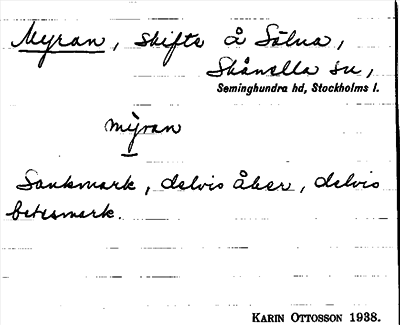 Myran, skifte å Sälna,
Skånella sn,
Seminghundra hd, Stockholms l.
mỳran
Sankmark, delvis åker, delvis
betesmark.
KARIN OTTOSSON 1938.